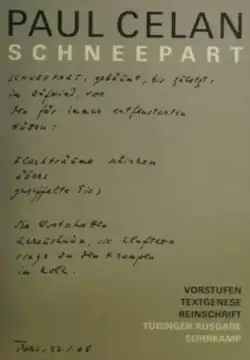 PAUL CELAN
SCHNEEPART
SCHNEEPART, gebäumt, bis zuletzt,
im Aufwind, vor
den für immer entfensterten
Hütten:
Flachträume schirken
übers
geriffelte Eis;
die Wortschatten
heraushaun, sie klaftern
rings um den Krampen
im Kolk.
VORSTUFEN
TEXTGENESE
REINSCHRIFT
TÜBINGER AUSGABE
SUHRKAMP
Paris, 22.1.68